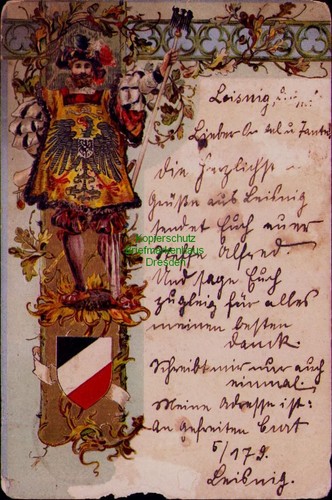 Leisnig,
Lieber On[kel] u Tante
Die Herzlichst
Grüße aus Leisnig
sendet Euch euer
Neffe Alfred
Und sage Euch
zugleig für alles
meinen besten
Danck.
Schreibt mir nur auch
einmal.
Meine Adresse ist:
An Gefreiten
5/179.
Leisnig.
Kopierschutz
Briefmarkenhaus
Dresden